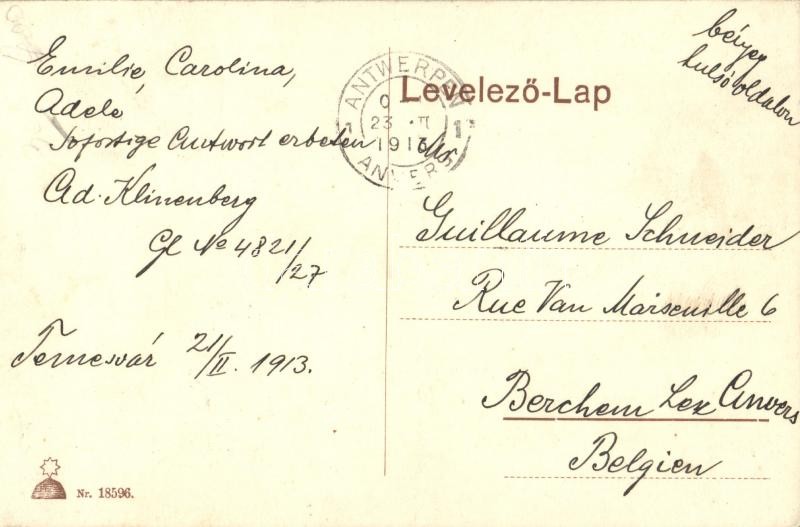 Emilie, Carolina,
Adele
Sofortige Antwort erbeten
Ad. Klinenberg
Gl No 4821/27
Temesvár 21/II. 1913.
Nr. 18596.
ANTWERPEN
23 II
1913
ANVERS
Levelező-Lap
bélyeg
tulsó oldalon
Mr
Guillaume Schneider
Rue Van Marseuille 6
Berchem Lez Anvers
Belgien